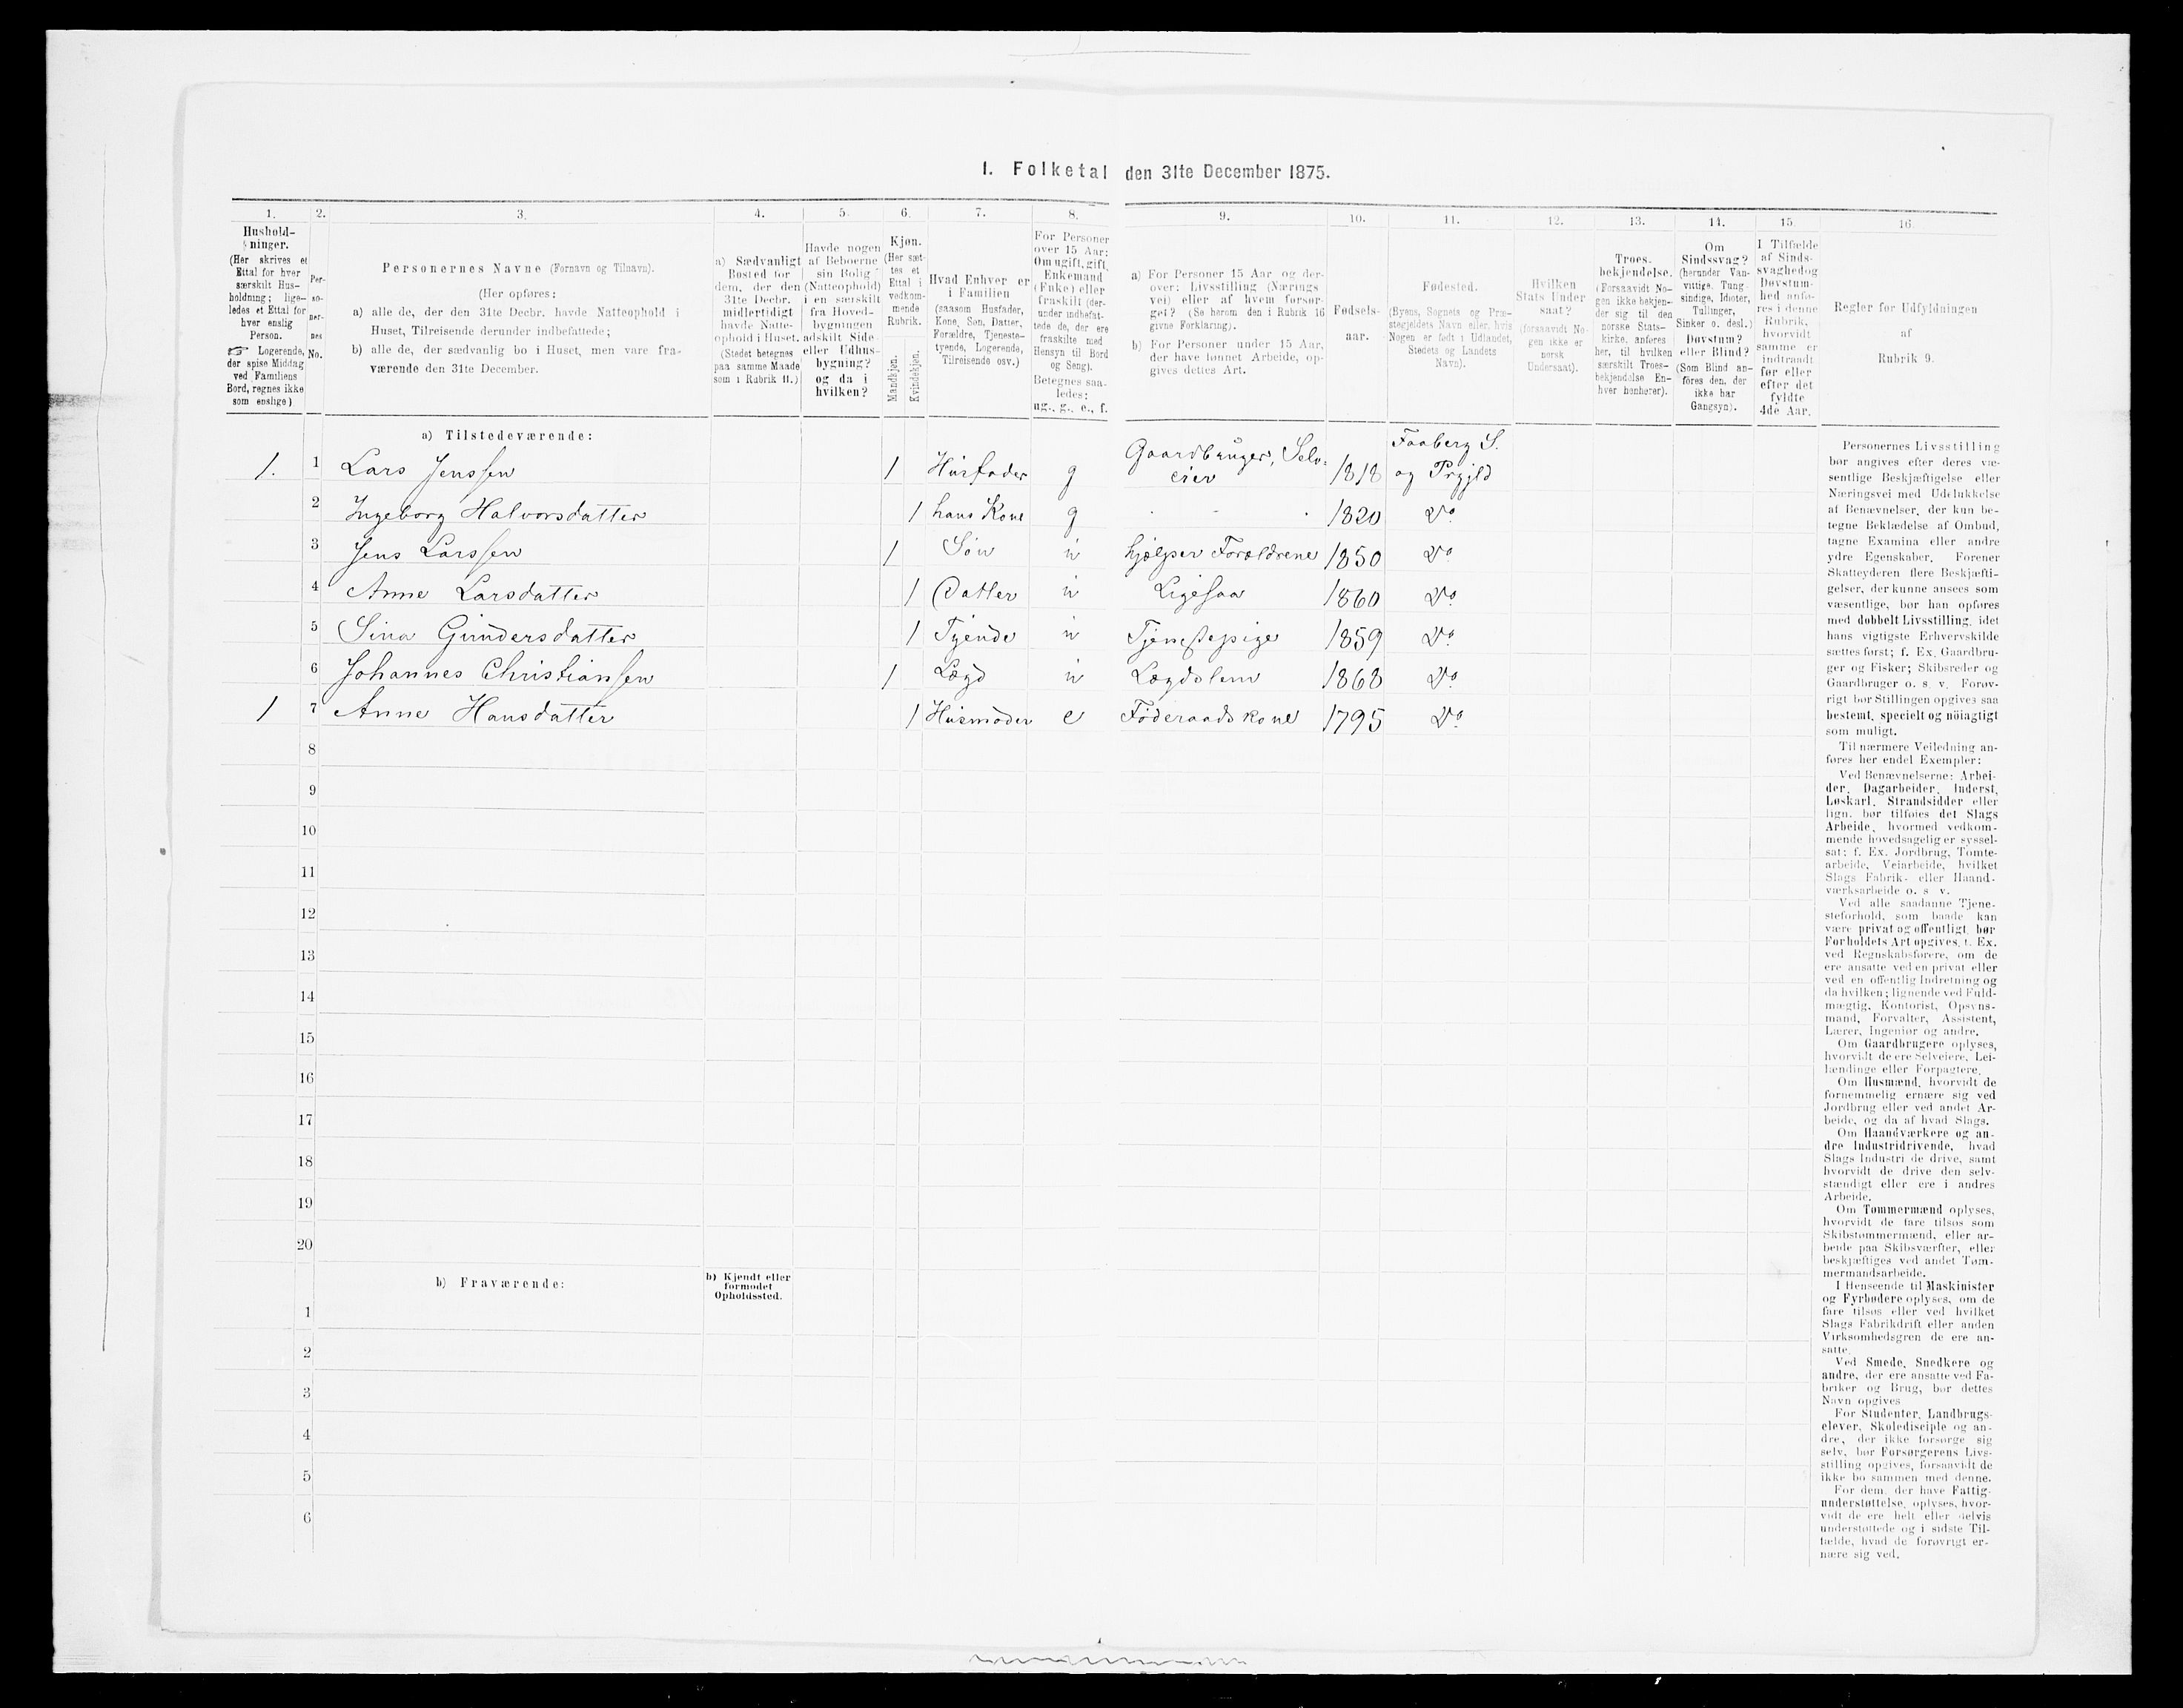 I. Folketal den 31te December 1875.
1. 2. 3. 4. 5. 6. 7. 8. 9. 10. 11. 12. 13. 14. 15. 16.
Hushold-
ninger.
(Her skrives et
Ettal for hver
særskilt Hus-
holdning; lige-
ledes et Ettal for
hver enslig
Person.
☞ Logerende,
der spise Middag
ved Familiens
Bord, regnes ikke
som enslige)
Per-
so-
ner-
nes
No.
Personernes Navne (Fornavn og Tilnavn).
(Her opføres:
a) alle de, der den 31te Decbr. havde Natteophold i
Huset, Tilreisende derunder indbefattede;
b) alle de, der sædvanlig bo i Huset, men vare fra-
værende den 31te December.
a) Sædvanligt
Bosted for
dem, der den
31te Decbr.
midlertidigt
havde Natte-
ophold i Huset.
(Stedet betegnes
paa samme Maade
som i Rubrik 11.)
Havde nogen
af Beboerne
sin Bolig
(Natteophold)
i en særskilt
fra Hoved-
bygningen
adskilt Side-
eller Udhus-
bygning?
og da i
hvilken?
Kjøn.
(Her sæt-
tes et
Ettal i
vedkom-
mende
Rubrik.
Mandkjøn.
Kvindekjøn.
Hvad Enhver er
i Familien
(saasom Husfader,
Kone, Søn, Datter,
Forældre, Tjeneste-
tyende, Logerende,
Tilreisende osv.)
For Personer
over 15 Aar:
Om ugift, gift,
Enkemand
(Enke) eller
fraskilt (der-
under indbefat-
tede de, der ere
fraskilte med
Hensyn til Bord
og Seng).
Betegnes saa-
ledes:
ug., g., e., f.
a) For Personer 15 Aar og der-
over: Livsstilling (Nærings-
vei) eller af hvem forsør-
get? (Se herom den i Rubrik 16
givne Forklaring).
b) For Personer under 15 Aar,
der have lønnet Arbeide, op-
gives dettes Art.
Fødsels-
aar.
Fødested.
(Byens, Sognets og Præ-
stegjeldets Navn eller, hvis
Nogen er født i Udlandet,
Stedets og Landets
Navn).
Hvilken
Stats Under-
saat?
(forsaavidt No-
gen ikke er
norsk
Undersaat).
Troes-
bekjendelse.
(Forsaavidt No-
gen ikke bekjen-
der sig til den
norske Stats-
kirke, anføres
her, til hvilken
særskilt Troes-
bekjendelse En-
hver henhører).
Om
Sindssvag?
(herunder Van-
vittige, Tung-
sindige, Idioter,
Tullinger,
Sinker o. desl.)
Døvstum?
eller Blind?
(Som Blind an-
føres den, der
ikke har
Gangsyn).
I Tilfælde
af Sinds-
svaghed og
Døvstum-
hed anfø-
res i denne
Rubrik,
hvorvidt
samme er
indtraadt
før eller
efter det
fyldte
4de Aar.
Regler for Udfyldningen
af
Rubrik 9.
a) Tilstedeværende:
1. 1 Lars Jenssen 1 Husfader g Gaardbruger, Selv-
eier 1818 Faaberg S.
og Prgjld
2 Ingeborg Halvorsdatter 1 hans Kone g - - - 1820 Do
3 Jens Larssen 1 Søn u hjælper Forældrene 1850 Do
4 Anne Larsdatter 1 Datter u Ligesaa 1860 Do
5 Sina Gundersdatter 1 Tyende u Tjenestepige 1859 Do
6 Johannes Christiansen 1 Lægd u Lægdslem 1868 Do
1 7 Anne Hansdatter 1 Husmoder e Føderaadskone 1795 Do
8
9
10
11
12
13
14
15
16
17
18
19
20
b) Fraværende:
b) Kjendt eller
formodet
Opholdssted.
1
2
3
4
5
6
Personernes Livsstilling
bør angives efter deres væ-
sentlige Beskjæftigelse eller
Næringsvei med Udelukkelse
af Benævnelser, der kun be-
tegne Beklædelse af Ombud,
tagne Examina eller andre
ydre Egenskaber. Forener
Skatteyderen flere Beskjæfti-
gelser, der kunne ansees som
væsentlige, bør han opføres
med dobbelt Livsstilling, idet
hans vigtigste Erhvervskilde
sættes først; f. Ex. Gaardbru-
ger og Fisker; Skibsreder og
Gaardbruger o. s. v. Forøv-
rigt bør Stillingen opgives saa
bestemt, specielt og nöiagtigt
som muligt.
Til nærmere Veiledning an-
føres her endel Exempler:
Ved Benævnelserne: Arbei-
der, Dagarbeider, Inderst,
Løskarl, Strandsidder eller
lign. bør tilføies det Slags
Arbeide, hvormed vedkom-
mende hovedsagelig er syssel-
sat; f. Ex. Jordbrug, Tomte-
arbeide, Veiarbeide, hvilket
Slags Fabrik- eller Haand-
værksarbeide o. s. v.
Ved alle saadanne Tjene-
steforhold, som baade kan
være privat og offentligt, bør
Forholdets Art opgives, f. Ex.
ved Regnskabsførere, om de
ere ansatte ved en privat eller
ved en offentlig Indretning og
da hvilken; lignende ved Fuld-
mægtig, Kontorist, Opsyns-
mand, Forvalter, Assistent,
Lærer, Ingeniør og andre.
Om Gaardbrugere oplyses,
hvorvidt de ere Selveiere, Lei-
lændinge eller Forpagtere.
Om Husmænd, hvorvidt de
fornemmelig ernære sig ved
Jordbrug eller ved andet Ar-
beide, og da af hvad Slags.
Om Haandværkere og an-
dre Industridrivende, hvad
Slags Industri de drive, samt
hvorvidt de drive den selv-
stændigt eller ere i andres
Arbeide.
Om Tømmermænd oplyses,
hvorvidt de fare tilsøs som
Skibstømmermænd, eller ar-
beide paa Skibsværfter, eller
beskjæftiges ved andet Tøm-
mermandsarbeide.
I Henseende til Maskinister
og Fyrbødere oplyses, om de
fare tilsøs eller ved hvilket
Slags Fabrikdrift eller anden
Virksomhedsgren de ere an-
satte.
Ved Smede, Snedkere og
andre, der ere ansatte ved Fa-
briker og Brug, bør dettes
Navn opgives
For Studenter, Landbrugs-
elever, Skoledisciple og an-
dre, der ikke forsørge sig
selv, bør Forsørgerens Livs-
stilling opgives, forsaavidt de
ikke bo sammen med denne.
For dem, der have Fattig-
understøttelse, oplyses, hvor-
vidt de ere helt eller delvis
understøttede og i sidste Til-
fælde, hvad de forøvrigt er-
nære sig ved.